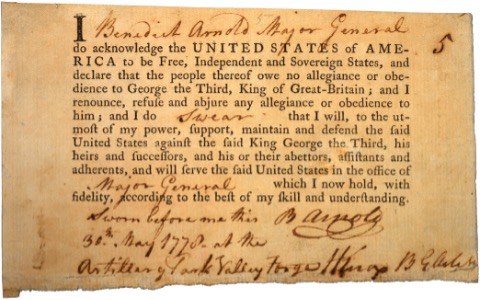 I Benedict Arnold Major General
do acknowledge the UNITED STATES of AME-
RICA to be Free, Independent and Sovereign States, and
declare that the people thereof owe no allegiance or obe-
dience to George the Third, King of Great-Britain; and I
renounce, refuse and abjure any allegiance or obedience to
him; and I do Swear that I will, to the ut-
most of my power, support, maintain and defend the said
United States against the said King George the Third, his
heirs and successors, and his or their abettors, assistants and
adherents, and will serve the said United States in the office of
Major General which I now hold, with
fidelity, according to the best of my skill and understanding.
Sworn before me this B Arnold
30th May 1778 - at the
Artillery Park Valley Forge HKnox B G Artil
5